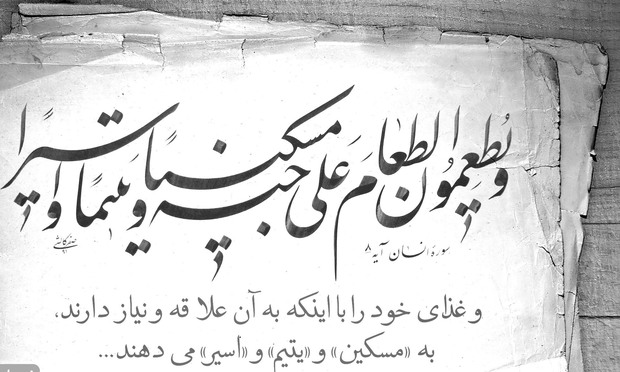 وَيُطعِمُونَ الطَّعَامَ عَلَى حُبِّهِ مِسكِينًا وَيَتِيمًا وَأَسِيرًا
سورهٔ انسان آیه ۸
و غذای خود را با اینکه به آن علاقه و نیاز دارند،
به «مسکین» و «یتیم» و «اسیر» می دهند...